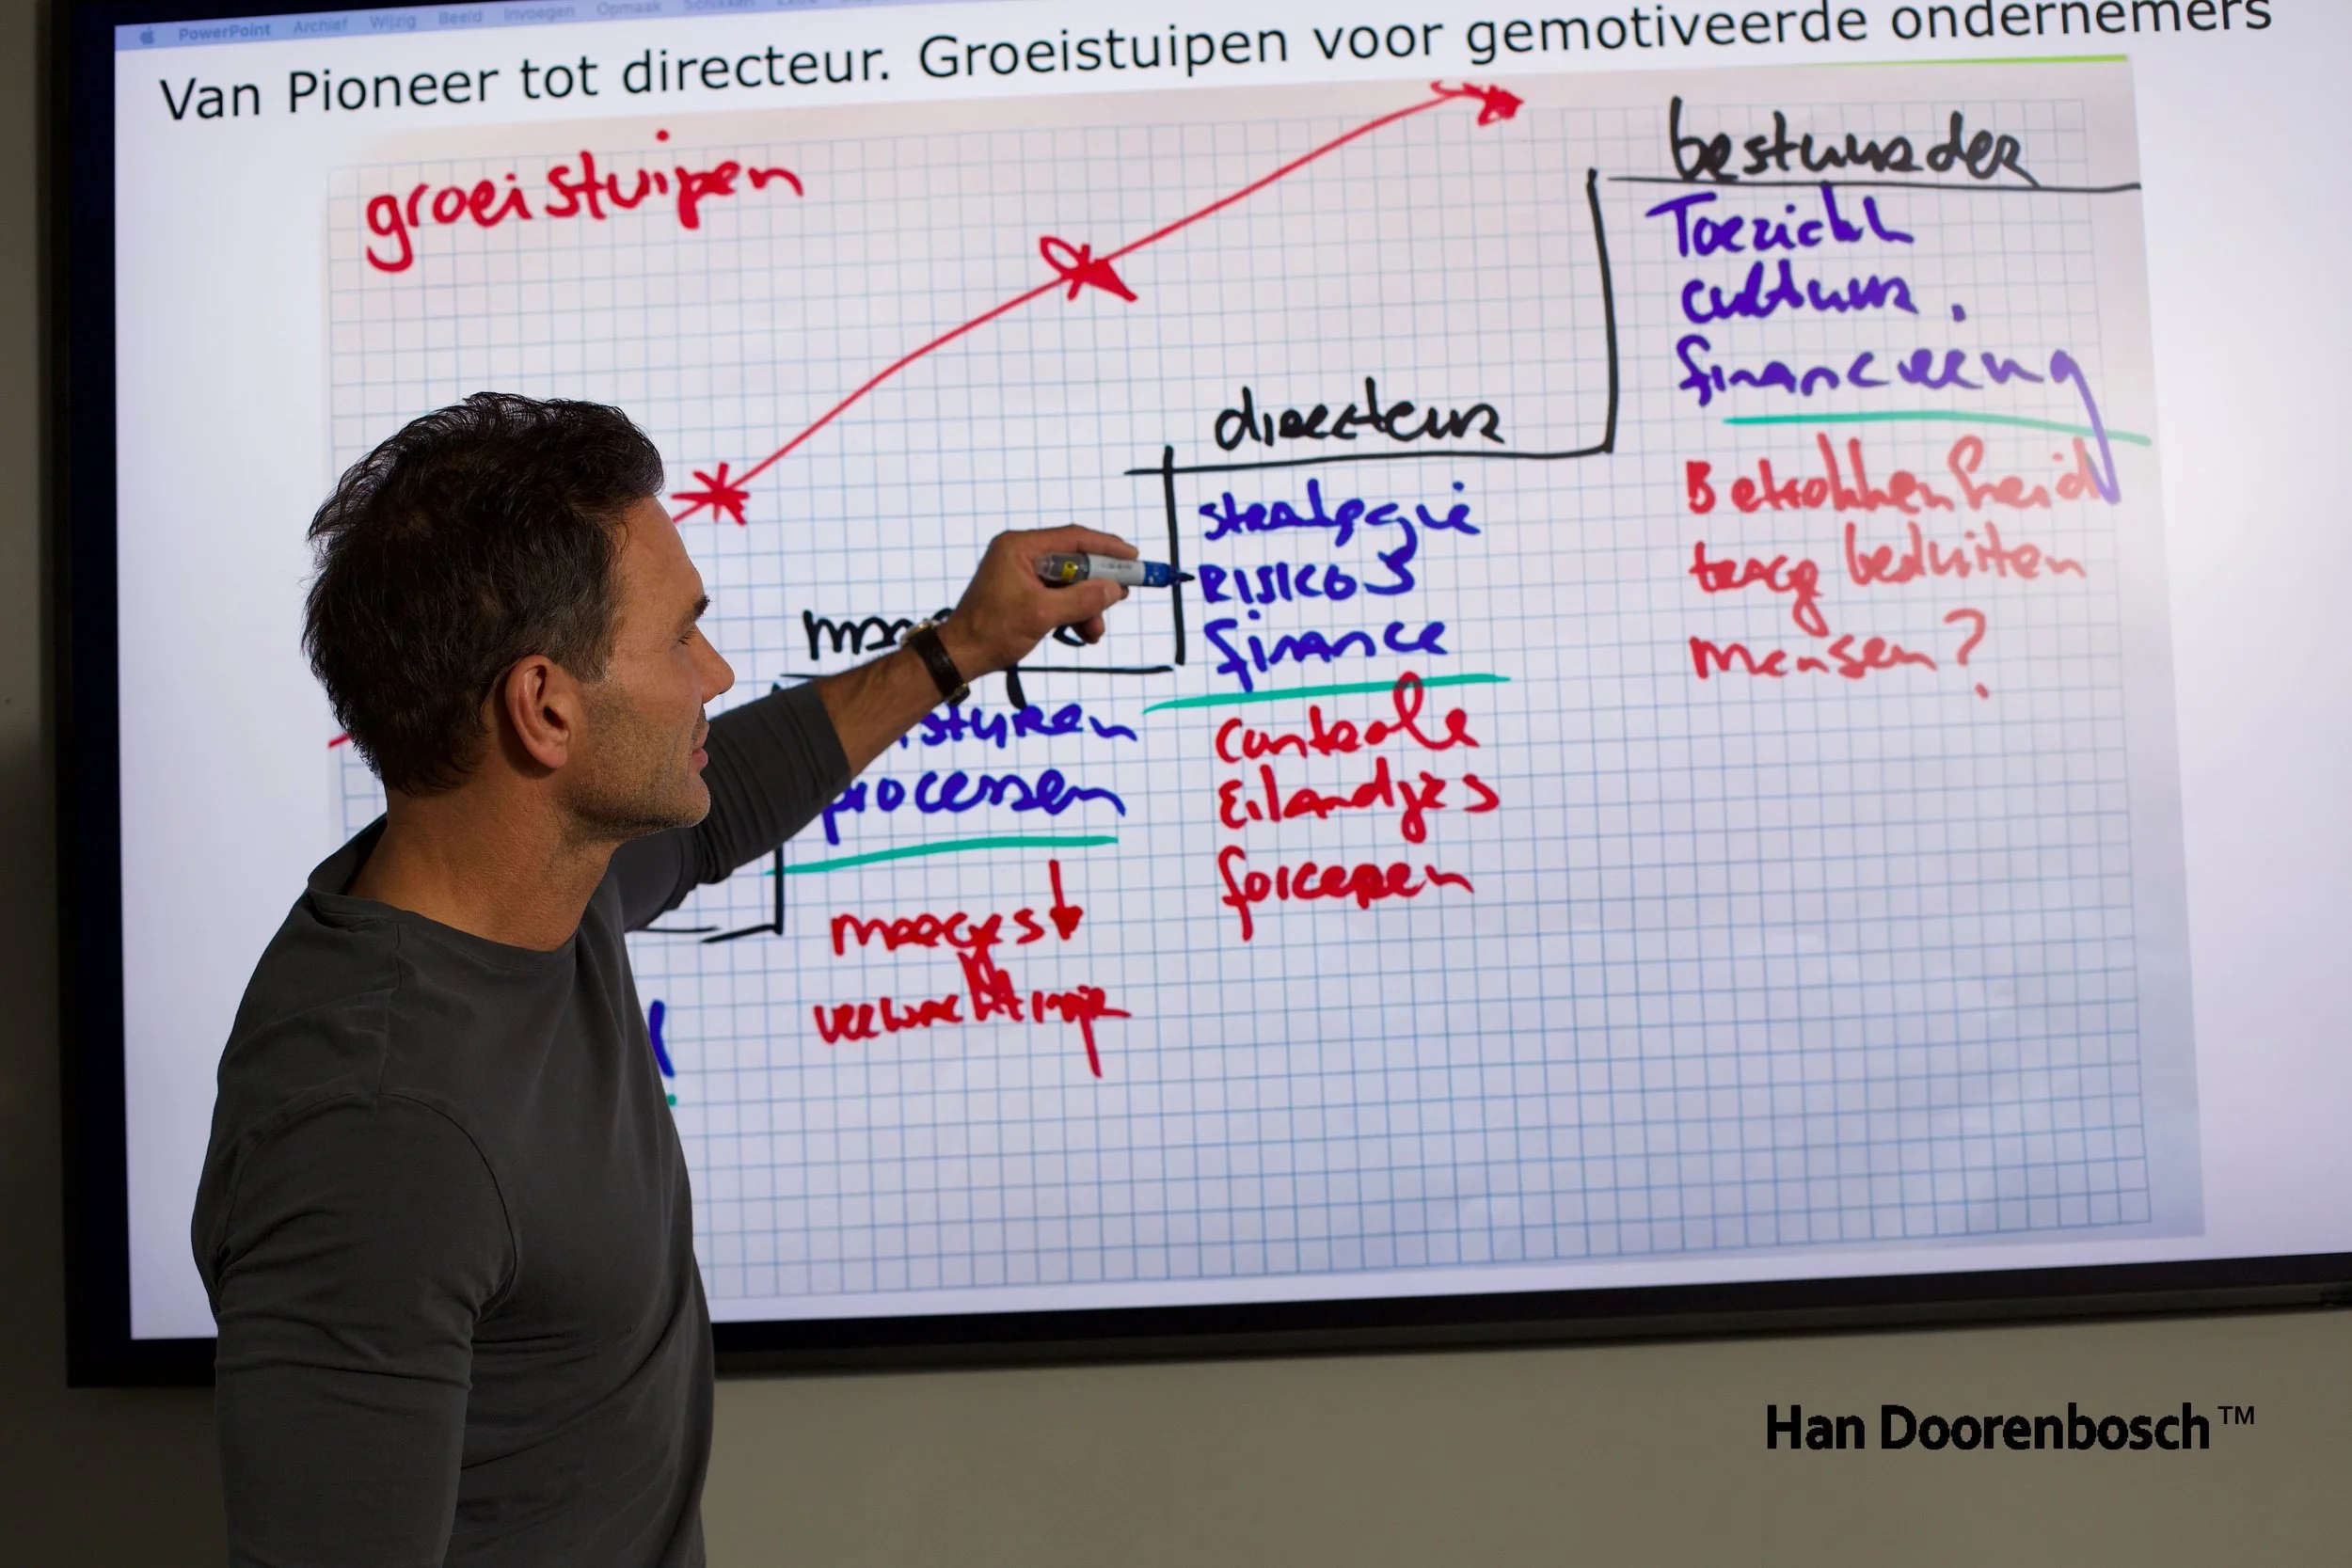 PowerPoint Archief Wijzig Beeld Invoegen Opmaak Schikken Extra
Van Pioneer tot directeur. Groeistuipen voor gemotiveerde ondernemers
groeistuipen
bestuurder
Toezicht
cultuur.
financiering
Betrokkenheid
traag besluiten
mensen?
directeur
strategie
Risico's
finance
controle
Eilandjes
forceren
sturen
processen
marges
verwachting
Han Doorenbosch™